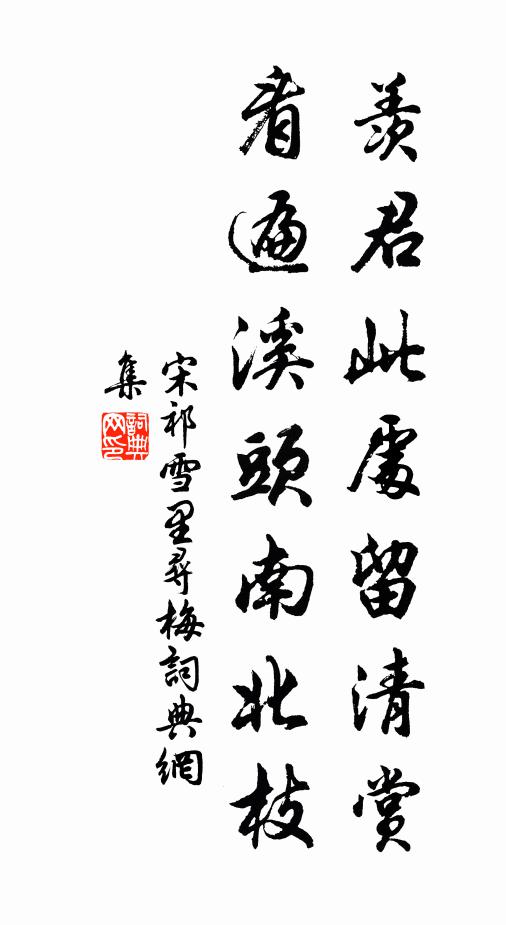 羨君此處留清賞
看遍溪頭南北枝
宋祁雪里尋梅詞典網
集
詞典
网印